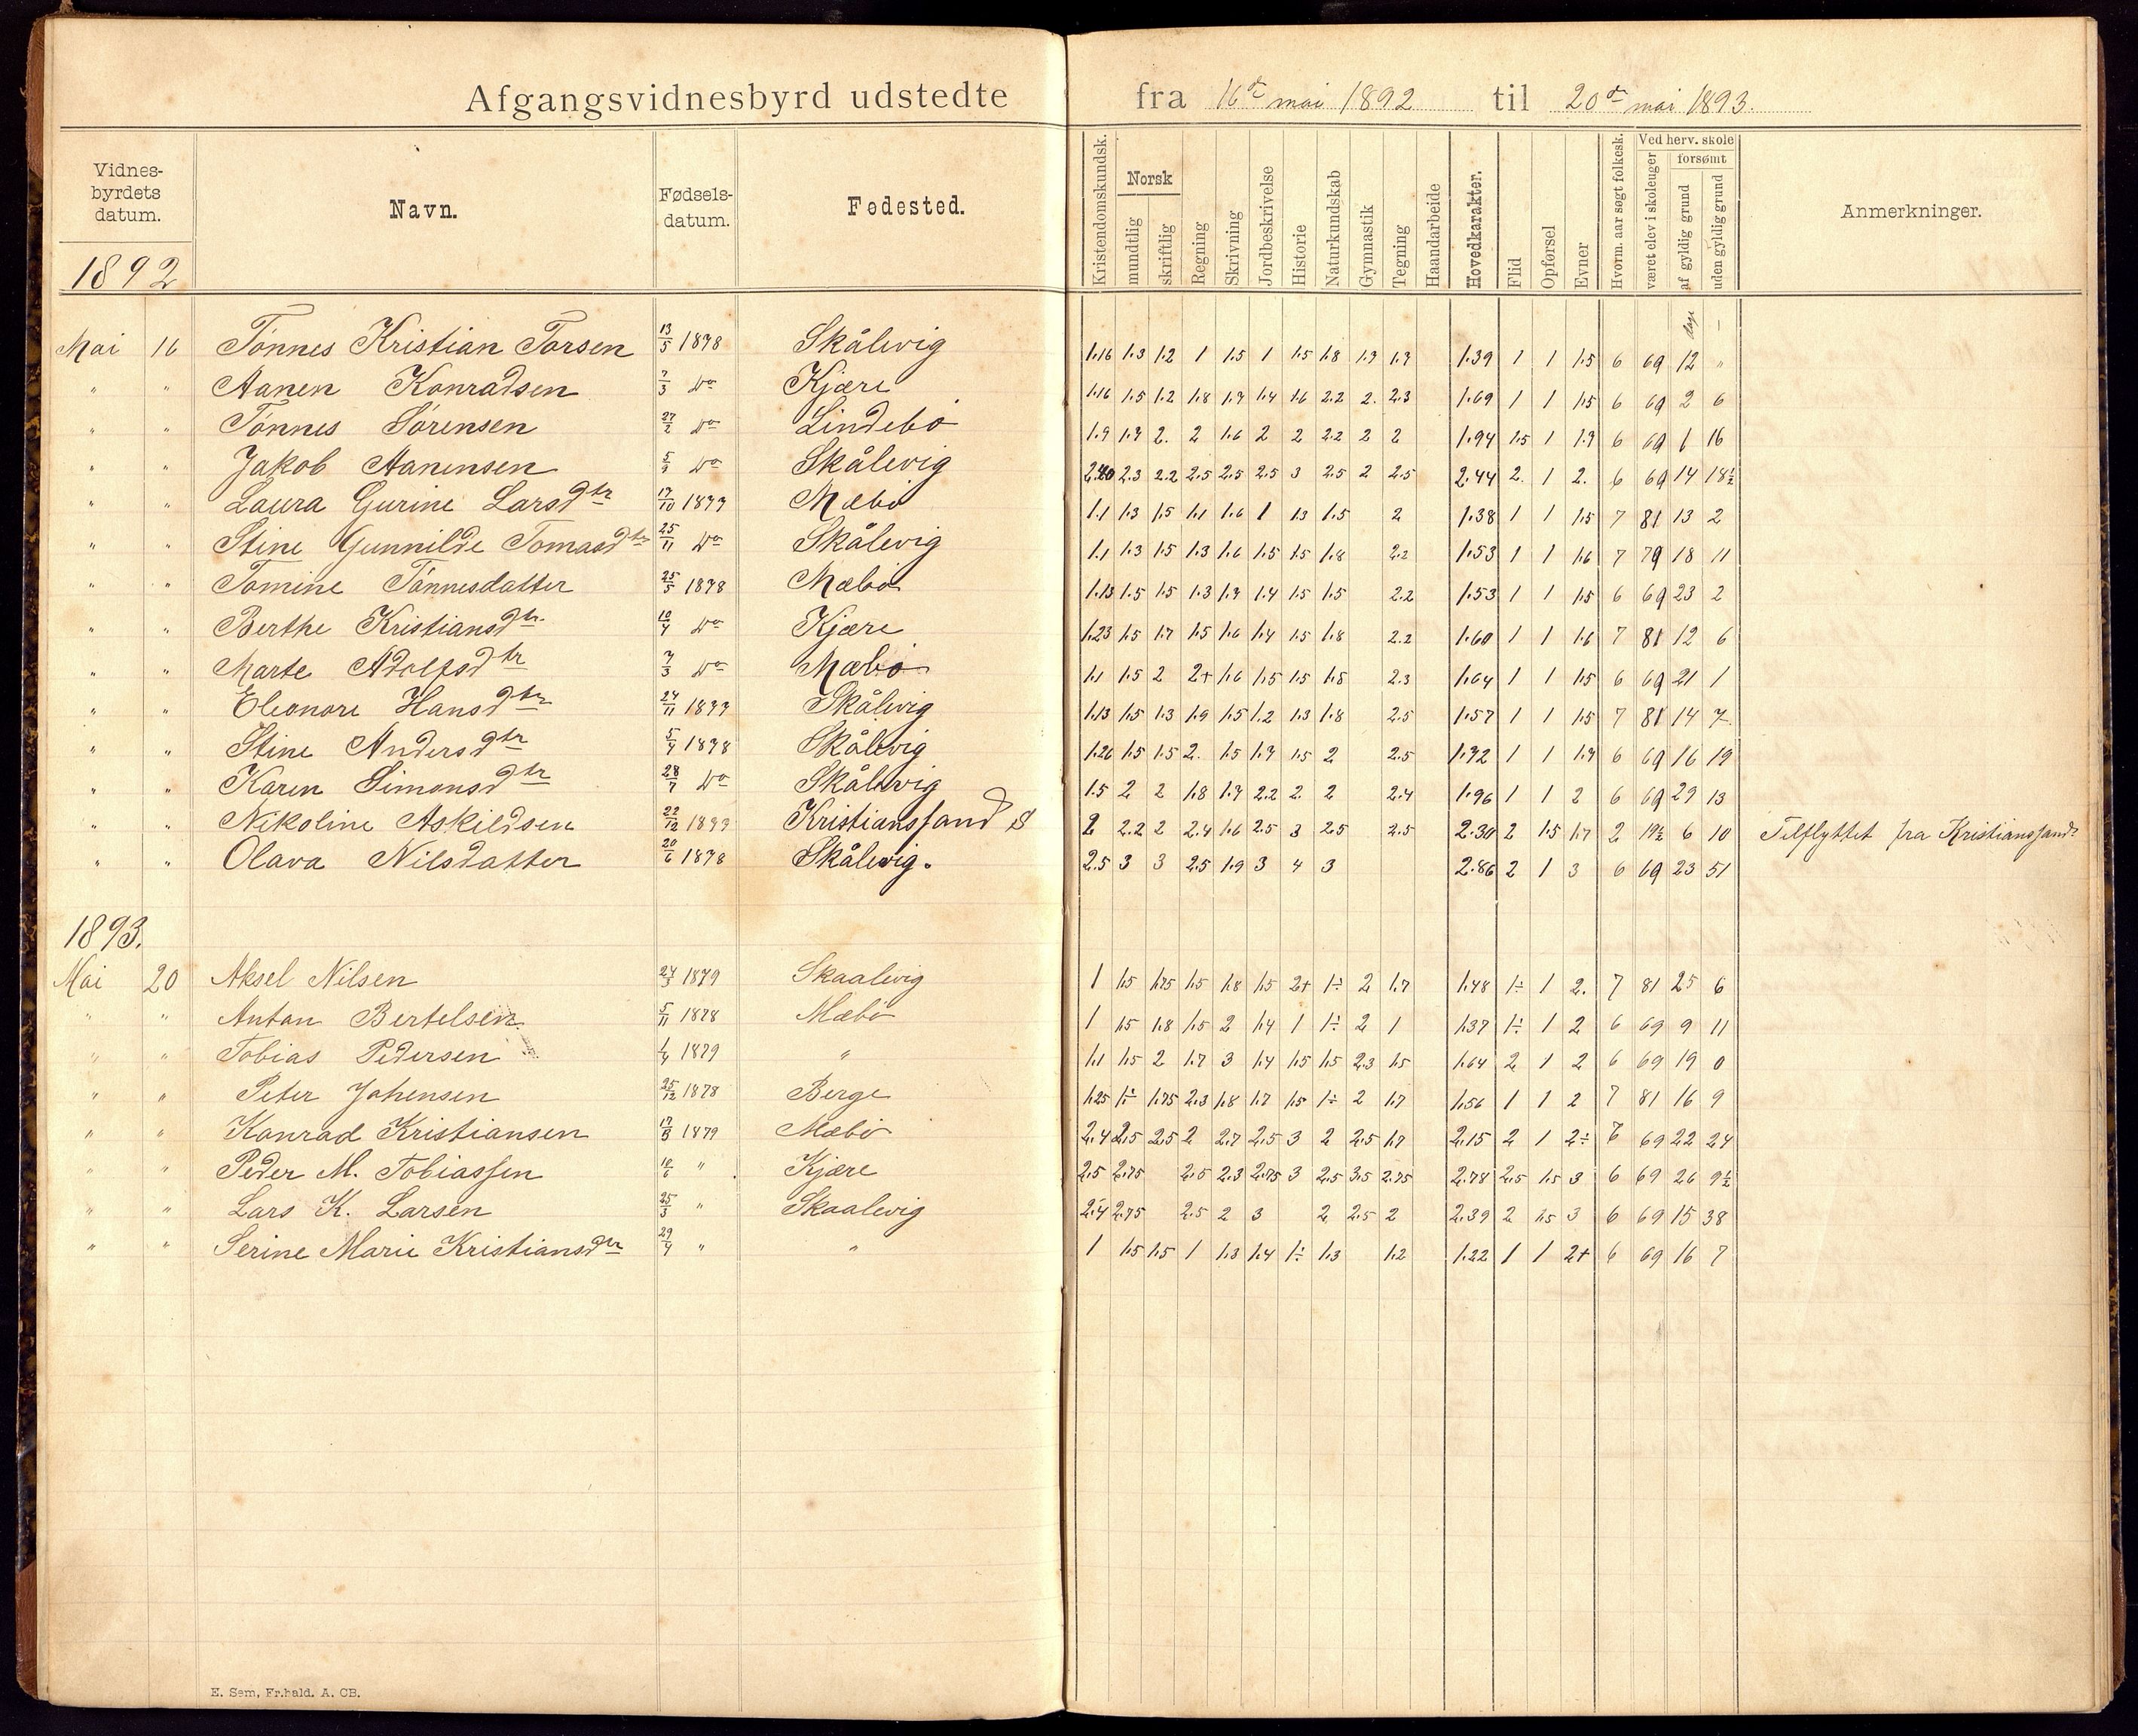 Afgangsvidnesbyrd udstedte fra 16de mai 1892 til 20de mai 1893.
Vidnes-byrdets datum. Navn. Fødsels-datum. Fødested. Kristendomskundsk. Norsk mundtlig skriftlig Regning Skrivning Jordbeskrivelse Historie Naturkundskab Gymnastik Tegning Haandarbeide Hovedkarakter. Flid Opførsel Evner Hvorm. aar søgt folkesk. Ved herv. skole været elev i skoleuger forsømt af gyldig grund uden gyldig grund Anmerkninger.
1892
dage –
Mai 16 Tönnes Kristian Torsen 13/5 1878 Skålevig 1.16 1.3 1.2 1 1.5 1 1.5 1.8 1.7 1.7 1.39 1 1 1.5 6 69 12 "
" " Aanen Konradsen 7/3 Do Kjære 1.16 1.5 1.2 1.8 1.7 1.4 1.6 2.2 2. 2.3 1.69 1 1 1.5 6 69 2 6
" " Tönnes Sörensen 27/2 Do Lindebö 1.9 1.7 2. 2 1.6 2 2 2.2 2 2 1.94 1.5 1 1.7 6 69 1 16
" " Jakob Aanensen Do Skålevig 2.3 2.2 2.5 2.5 2.5 3 2.5 2 2.5 2.44 2. 1 2. 6 69 14 18½
" " Laura Gurine Larsdtr 17/10 1877 Mæbö 1.1 1.3 1.5 1.1 1.6 1 1.3 1.5 2 1.38 1 1 1.5 7 81 13 2
" " Stine Gunnilde Tomasdtr 25/11 Do Skålevig 1.1 1.3 1.5 1.3 1.6 1.5 1.5 1.8 2.2 1.53 1 1 1.6 7 79 18 11
" " Tomine Tönnesdatter 25/5 1878 Mæbö 1.13 1.5 1.5 1.3 1.7 1.4 1.5 1.5 2.2 1.53 1 1 1.5 6 69 23 2
" " Berthe Kristiansdtr. 10/4 Do Kjære 1.23 1.5 1.7 1.5 1.6 1.4 1.5 1.8 2.2 1.60 1 1 1.6 7 81 12 6
" " Marte Adolfsdtr 7/3 Do Mæbö 1.1 1.5 2 2+ 1.6 1.5 1.5 1.5 2.3 1.64 1 1 1.5 6 69 21 1
" " Eleonore Hansdtr 24/11 1877 Skålevig 1.13 1.5 1.3 1.9 1.5 1.2 1.3 1.8 2.5 1.57 1 1 1.5 7 81 14 7.
" " Stine Andersdtr 5/4 1878 Skålevig 1.26 1.5 1.5 2. 1.5 1.7 1.5 2 2.5 1.72 1 1 1.7 6 69 16 19
" " Karen Simonsdtr 28/7 Do Skålevig 1.5 2 2 1.8 1.7 2.2 2. 2 2.4 1.96 1 1 2 6 69 29 13
" " Nikoline Askildsen 22/12 1877 Kristianssand S 2 2.2 2 2.4 1.6 2.5 3 2.5 2.5 2.30 2 1.5 1.7 2 19½ 6 10 Tilflyttet fra Kristianssand
" " Olava Nilsdatter 20/6 1878 Skålevig. 2.5 3 3 2.5 1.9 3 4 3 2.86 2 1 3 6 69 23 51
1893.
Mai 20 Aksel Nilsen 24/3 1879 Skaalevig 1 1.5 1.75 1.5 1.8 1.5 2+ 1÷ 2 1.7 1.48 1÷ 1 2. 7 81 25 6
" " Anton Bertelsen 5/11 1878 Mæbö 1 1.5 1.8 1.5 2 1.4 1 1÷ 2 1 1.37 1÷ 1 2 6 69 9 11
" " Tobias Pedersen 1/4 1879 " 1.1 1.5 2 1.7 3 1.4 1.5 1.5 2.3 1.5 1.64 2 1 2 6 69 19 0
" " Peter Johensen 25/12 1878 Berge 1.25 1÷ 1.75 2.3 1.8 1.7 1.5 1÷ 2 1.7 1.56 1 1 2 7 81 16 9
" " Konrad Kristiansen 1879 Mæbö 2.4 2.5 2.5 2 2.7 2.5 3 2 2.5 1.7 2.15 2 1 2÷ 6 69 22 24
" " Peder M. Tobiassen 10/6 " Kjære 2.5 2.75 2.5 2.3 2.75 3 2.5 3.5 2.75 2.78 2.5 1.5 3 6 69 26 9½
" " Lars K. Larsen 25/3 " Skaalevig 2.4 2.75 2.5 2 3 2 2.5 2 2.39 2 1.5 3 6 69 15 38
" " Serine Marie Kristiansdtr 29/4 " " 1 1.5 1.5 1 1.3 1.4 1÷ 1.3 1.2 1.22 1 1 2+ 6 69 16 7
E. Sem, Fr.hald. A. CB.